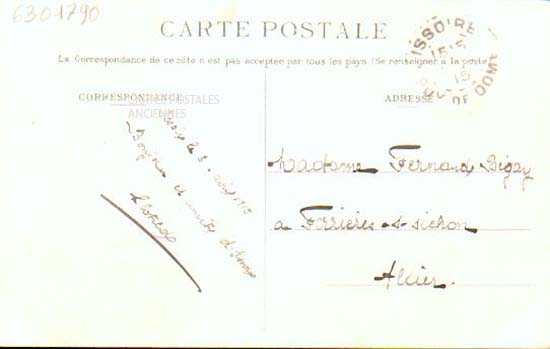 6301790
CARTE POSTALE
La Correspondance de ce côté n'est pas acceptée par tous les pays (Se renseigner à la poste)
CORRESPONDANCE
CARTES POSTALES
ANCIENNES
ADRESSE
ISSOIRE
15
PUY-DE-DOME
le 5 1915
Bonjour et amitiés
Madame Fernand Bigay
a Ferrières-s-sichon
Allier.